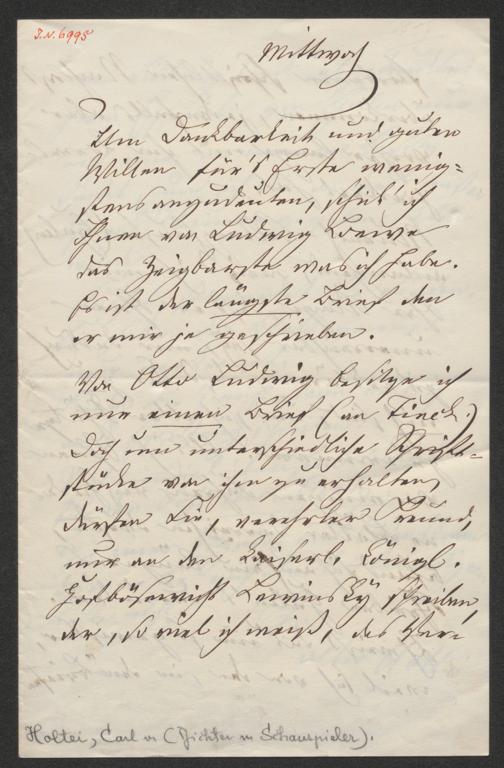 I.N. 6995
Mittwoch
Um Dankbarkeit und guten
Willen für's Erste wenig=
stens anzudeuten, schick' ich
Ihnen von Ludwig Loewe
das Zeigbarste was ich habe.
Es ist der längste Brief den
er mir je geschrieben.
Von Otto Ludwig besitze ich
nur einen Brief (an Tieck.)
Doch um unterschiedliche Schrift=
stücke von ihm zu erhalten,
dürfen Sie, verehrter Freund,
nur an den Kaiserl. Königl.
Hofbösewicht Lewinsky schreiben,
der, so viel ich weiß, des Ver=
Holtei, Carl v. (Dichter u Schauspieler).